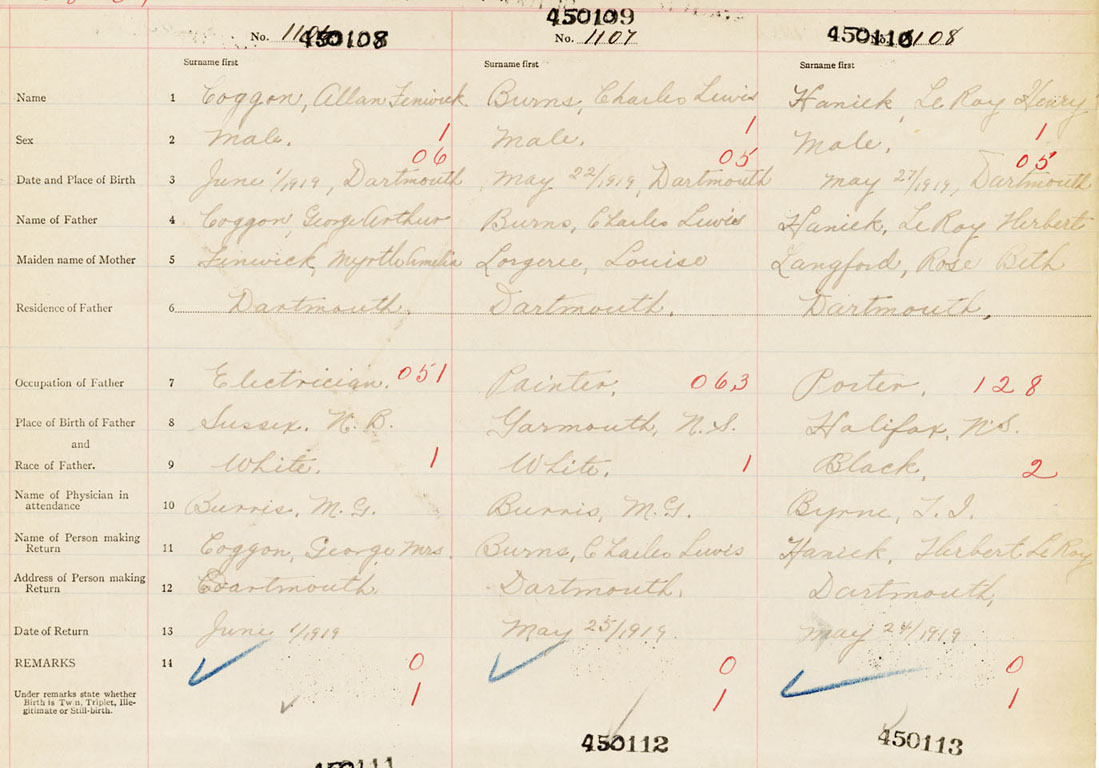 450109
No. 1106 450108 No. 1107 450110 No. 1108
Surname first Surname first Surname first
Name 1 Coggon, Allan Fenwick Burns, Charles Lewis Hanick, LeRoy Henry
Sex 2 Male. 1 Male. 1 Male. 1
06 05 05
Date and Place of Birth 3 June 1/1919, Dartmouth May 22/1919, Dartmouth May 27/1919, Dartmouth
Name of Father 4 Coggon, George Arthur Burns, Charles Lewis Hanick, LeRoy Herbert
Maiden name of Mother 5 Fenwick, Myrtle Amelia Lorgeree, Louise Langford, Rose Beth
Residence of Father 6 Dartmouth. Dartmouth. Dartmouth.
Occupation of Father 7 Electrician. 051 Painter. 063 Porter. 128
Place of Birth of Father 8 Sussex. N.B. Yarmouth, N.S. Halifax, N.S.
and
Race of Father. 9 White. 1 White. 1 Black. 2
Name of Physician in
attendance 10 Burris. M.G. Burris, M.G. Byrne, T.I.
Name of Person making
Return 11 Coggon, George Mrs. Burns, Charles Lewis Hanick, Herbert LeRoy
Address of Person making
Return 12 Dartmouth Dartmouth. Dartmouth.
Date of Return 13 June 1/1919 May 25/1919. May 29/1919
REMARKS 14 0 0 0
Under remarks state whether
Birth is Twin, Triplet, Ille-
gitimate or Still-birth. 1 1 1
450111 450112 450113